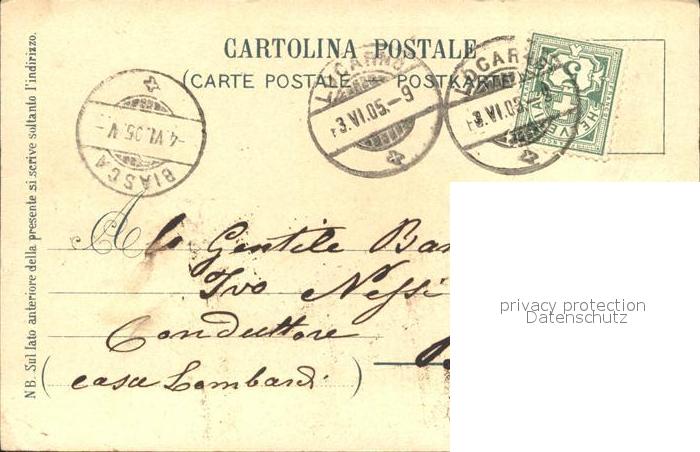 CARTOLINA POSTALE
(CARTE POSTALE POSTKARTE
LOCARNO
-3.VI.05.-9
LOCARNO
-3.VI.05.-9
HELVETIA
BIASCA
-4.VI.05.V-
NB. Sul lato anteriore della presente si scrive soltanto l'indirizzo.
Al Gentile Bar
Ivo Nessi
Conduttore
(casa Lombardi)
privacy protection
Datenschutz